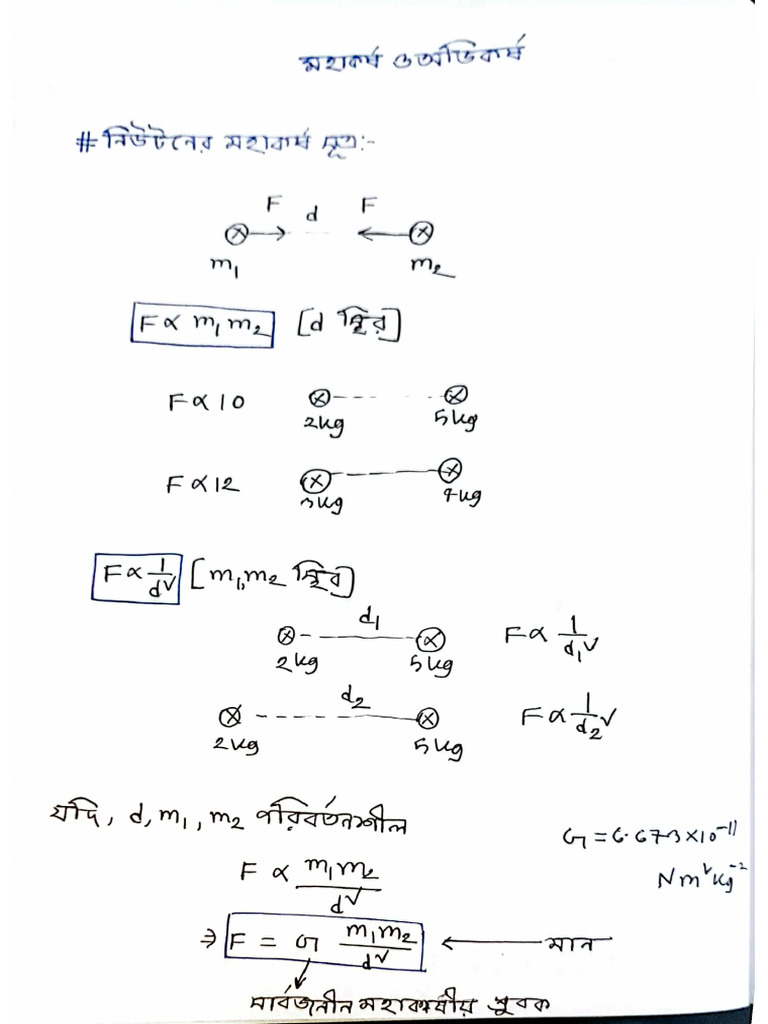 মহাকর্ষ ও অভিকর্ষ
# নিউটনের মহাকর্ষ সূত্র:-
F d F
m₁ m₂
F ∝ m₁m₂ [d স্থির]
F ∝ 10
2kg 5kg
F ∝ 12
3kg 4kg
F ∝ 1/d² [m₁,m₂ স্থির]
d₁
2kg 5kg F ∝ 1/d₁²
d₂
2kg 5kg F ∝ 1/d₂²
যদি, d, m₁, m₂ পরিবর্তনশীল
G = 6.673×10⁻¹¹
Nm²kg⁻²
F ∝ m₁m₂/d²
⇒ F = G m₁m₂/d² ← মান
সার্বজনীন মহাকর্ষীয় ধ্রুবক